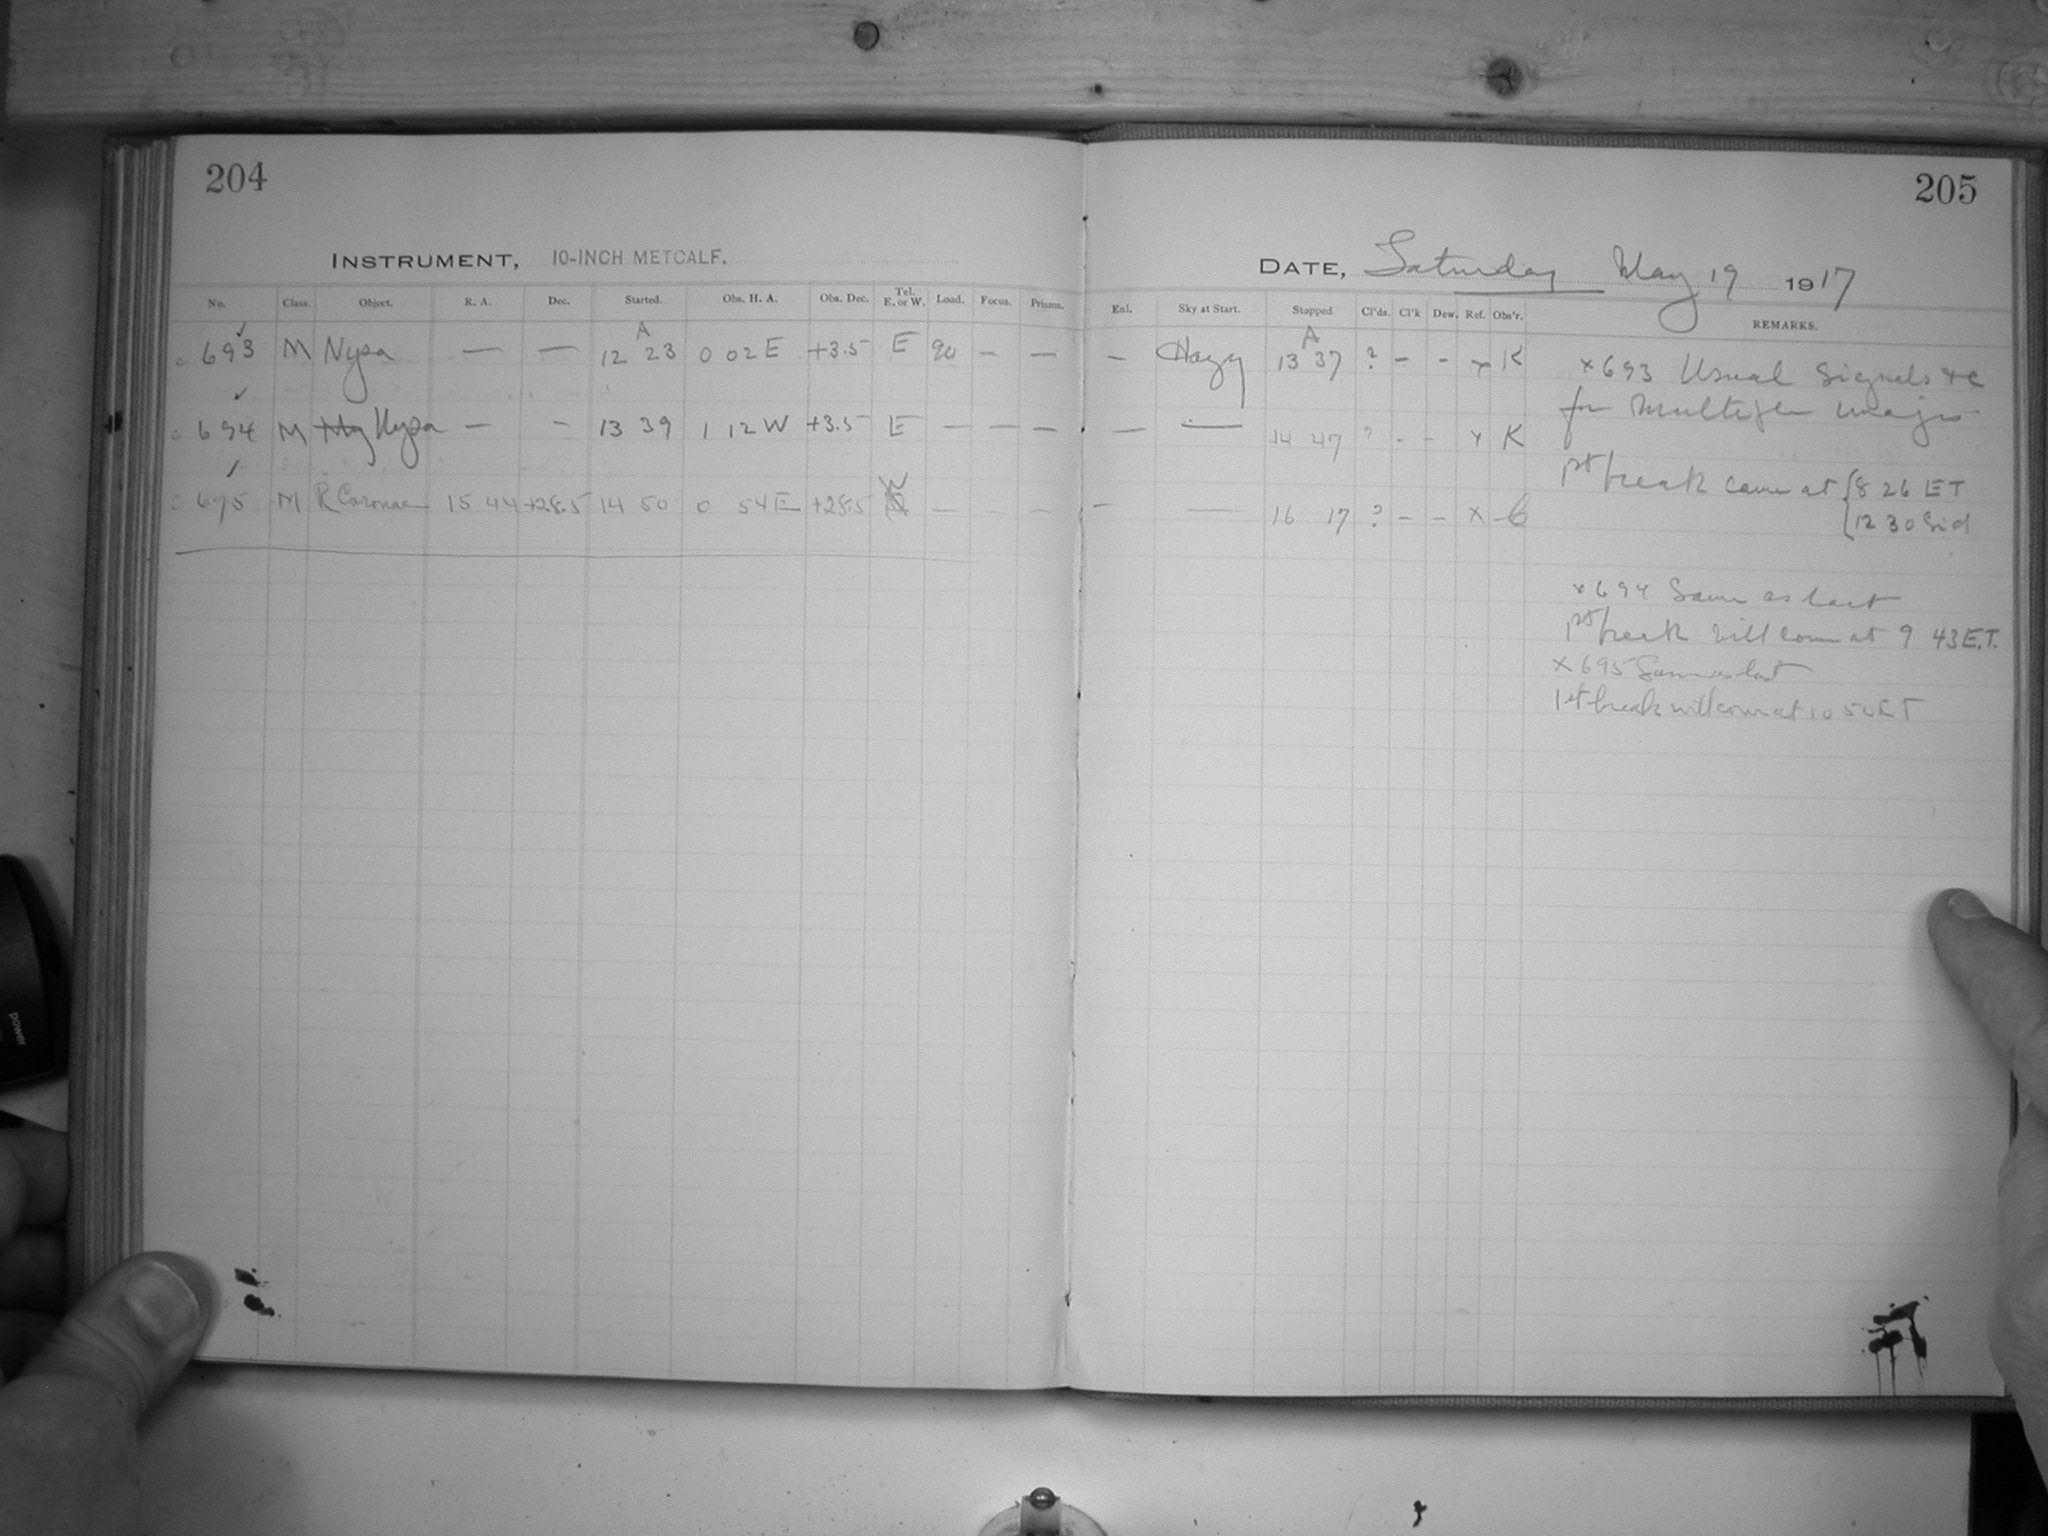 204
INSTRUMENT, 10-INCH METCALF.
No. Class. Object. R. A. Dec. Started. Obs. H. A. Obs. Dec. Tel. E. or W. Load. Focus. Prisms.
A
693 M Nysa — — 12 23 0 02 E +3.5 E 90 — —
694 M Nysa — — 13 39 1 12 W +3.5 E — — —
695 M R Coronae 15 44 +28.5 14 50 0 54 E +28.5 W — — —
205
DATE, Saturday May 19 1917
Enl. Sky at Start. Stopped Cl'ds. Cl'k Dew. Ref. Obs'r. REMARKS.
A
— Hazy 13 37 ? — — x K
— — 14 47 ? - - x K
— — 16 17 ? — — x
x 693 Usual signals &c
for multiple images
1st break came at { 8 26 ET
{ 12 30 Sid
x 694 Same as last
1st break will come at 9 43 E.T.
x 695 Same as last
1st break will come at 10 50 ET
power